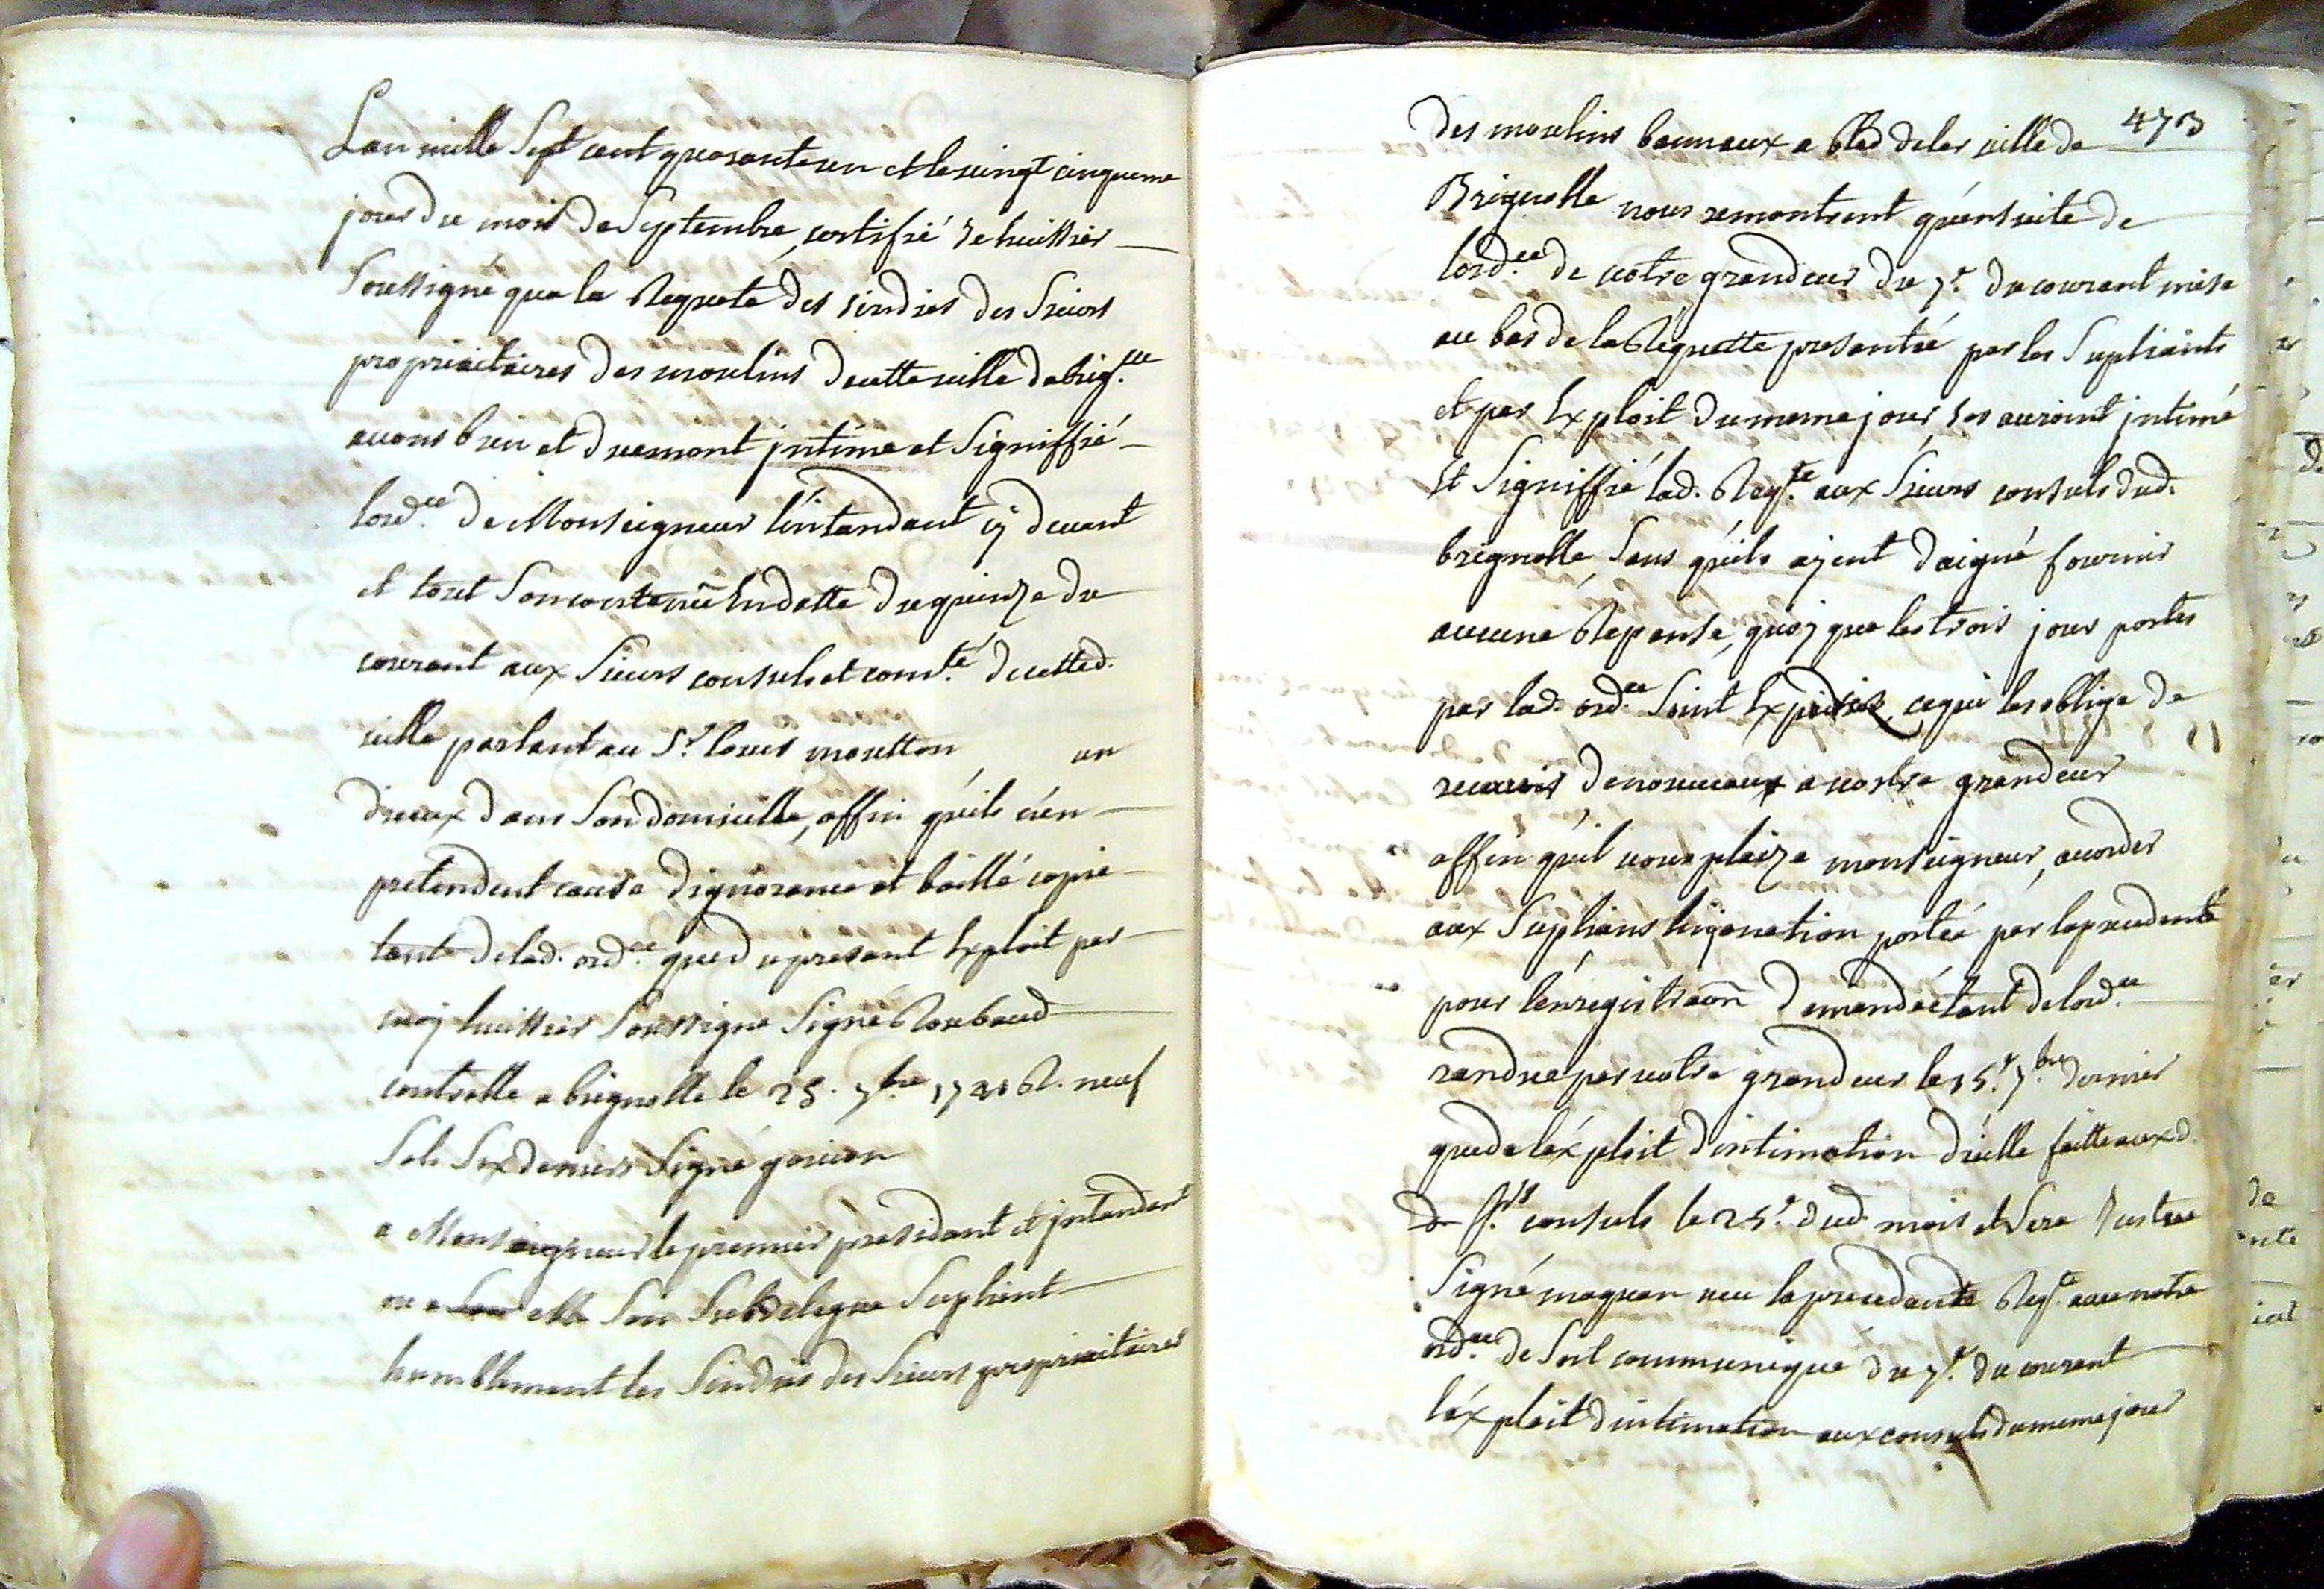 Lan mille Sept cent quarante un et le vingt cinqueme
jour du mois de Septembre, certifié Je huissier
Soussigné que la Requete des sindics des Sieurs
propriaitaires des moulins de cette ville de brig.lle
avons bien et duemant jntimé et Signiffié
lord.ce de Monseigneur l'intandant cy devant
et tout Son contenu En datte du quinze du
courant aux Sieurs consuls et com.té de cetted.
ville parlant au S.r louis moutton un
dieux dans Son domicille, affin quils n'en
pretendent cause dignorance et baillé copie
tant de lad. ord.ce que du presant Exploit par
moy huissier Soussigne Signé Roubaud
controlle a brignolle le 25. 7.bre 1741 R. neuf
Sols Six deniers Signé
a Monseigneur le premier presidant et jntandant
ou a M Son Subdelegue Suplient
humblement les Sindics des Sieurs propriaitaires
473
Des moulins bannaux a Bled de la ville de
Brignolle vous remontrent qu'ensuite de
lord.ce de votre grandeur du 7.e du courant mise
au bas de la Requette presantée par les Supliants
et par Exploit du meme jour, ils auroint jntimé
Et Signiffié lad. Req.te aux Sieurs consuls dud.
brignolle Sans qu'ils ayent daigné fournir
aucune Reponse, quoy que les trois jour portés
par lad. ord.ce Soint Expirés, ce qui les oblige de
recourir de nouveaux a vostre grandeur
affin qu'il vous plaize monseigneur, acorder
aux Suplians linjonction portée par la precedente
pour l'enregistraōn demandée tant de lord.ce
randue par votre grandeur le 15.e 7.bre dernier
que de léxploit dintimation d'icelle faitte auxd.
S.rs consuls le 25.e dud. mois et Sera Justice
Signé maquan veu la precedante Req.te avec notre
ord.ce de Soit communiqué du 7.e du courant
léxploit dintimation aux consuls du meme jour